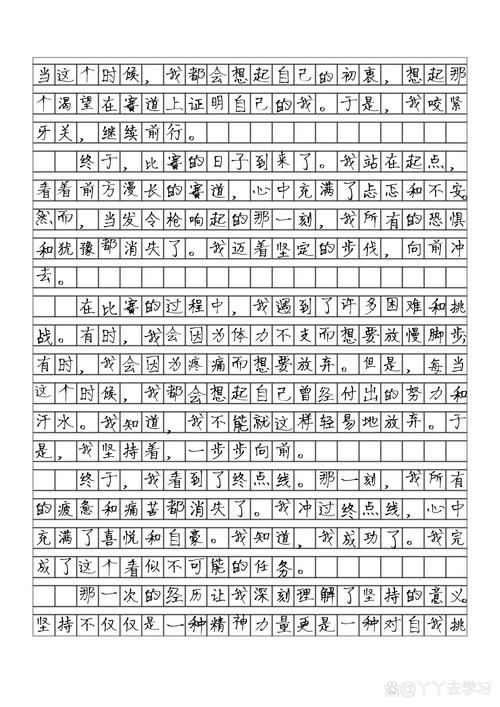 当这个时候，我都会想起自己的初衷，想起那
个渴望在赛道上证明自己的我。于是，我咬紧
牙关，继续前行。
终于，比赛的日子到来了。我站在起点，
看着前方漫长的赛道，心中充满了忐忑和不安。
然而，当发令枪响起的那一刻，我所有的恐惧
和犹豫都消失了。我迈着坚定的步伐，向前冲
去。
在比赛的过程中，我遇到了许多困难和挑
战。有时，我会因为体力不支而想要放慢脚步；
有时，我会因为疼痛而想要放弃。但是，每当
这个时候，我都会想起自己曾经付出的努力和
汗水。我知道，我不能就这样轻易地放弃。于
是，我坚持着，一步步向前。
终于，我看到了终点线。那一刻，我所有
的疲惫和痛苦都消失了。我冲过终点线，心中
充满了喜悦和自豪。我知道，我成功了。我完
成了这个看似不可能的任务。
那一次的经历让我深刻理解了坚持的意义。
坚持不仅仅是一种精神力量更是一种对自我挑
丫丫去学习